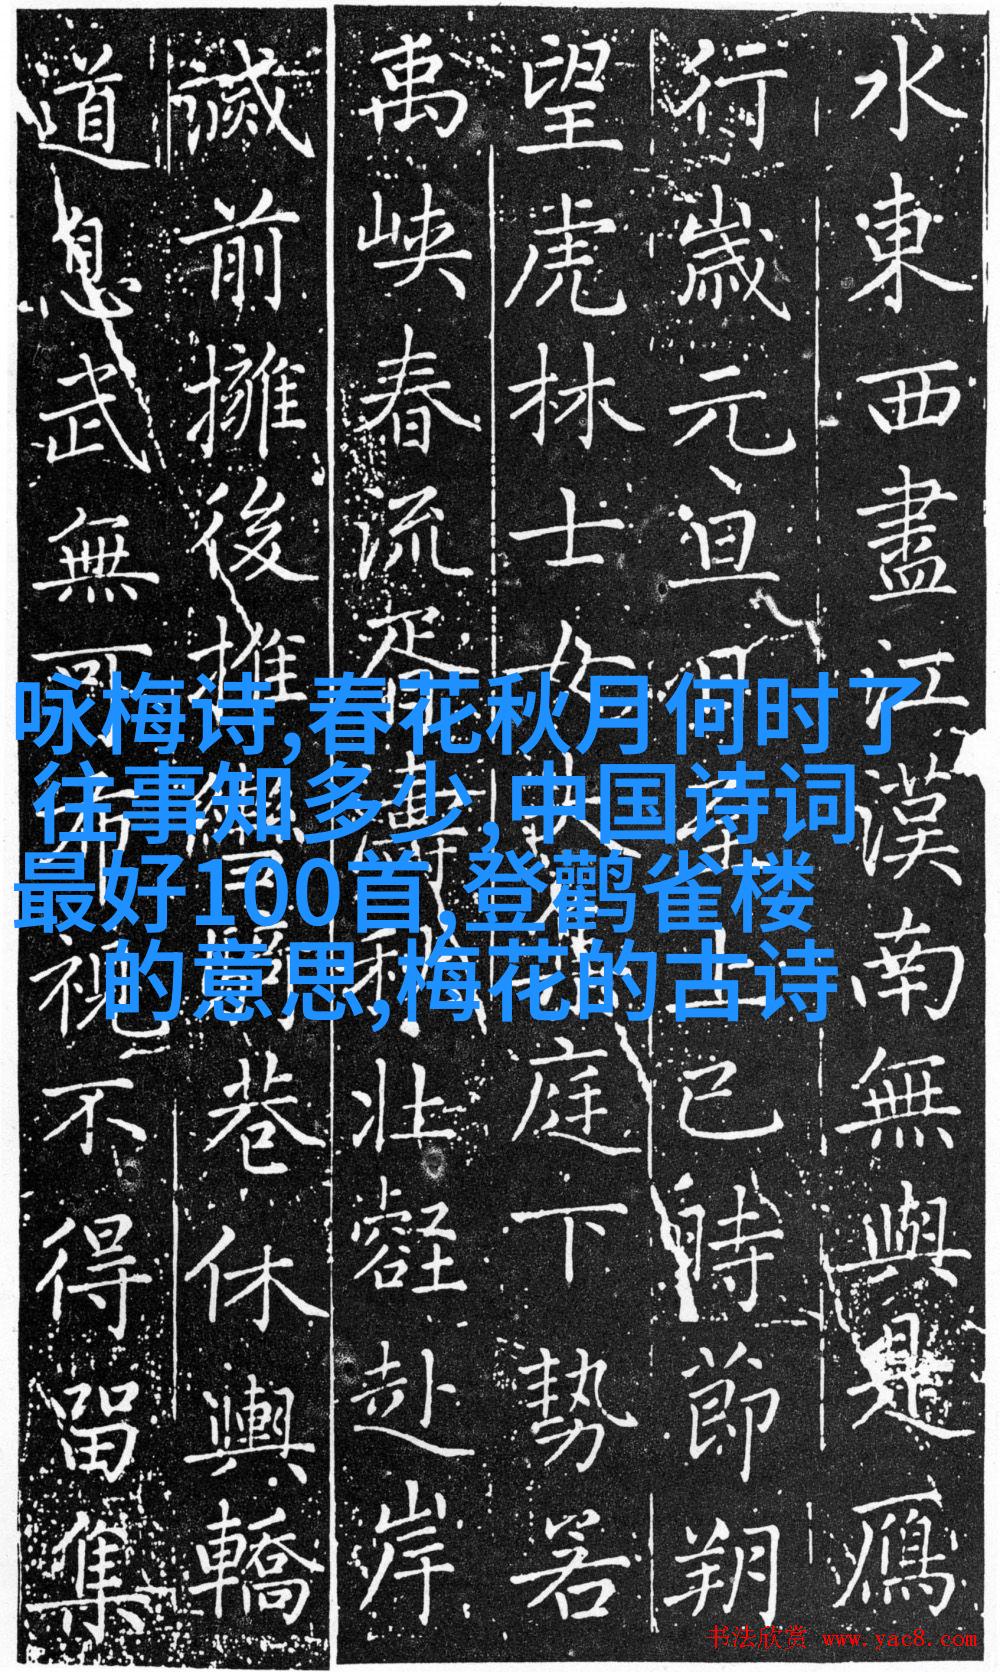 水東西盡江漢南無與是鴈
行歲元旦上巳時節朔
望虎林士女庭下勢若
禹峽春流秋壯壑赴岸
前擁後推巷休輿轎
道息武無可視不得留集
咏梅诗,春花秋月何时了
往事知多少,中国诗词
最好100首,登鹳雀楼
的意思,梅花的古诗
书法欣赏 www.yac8.com